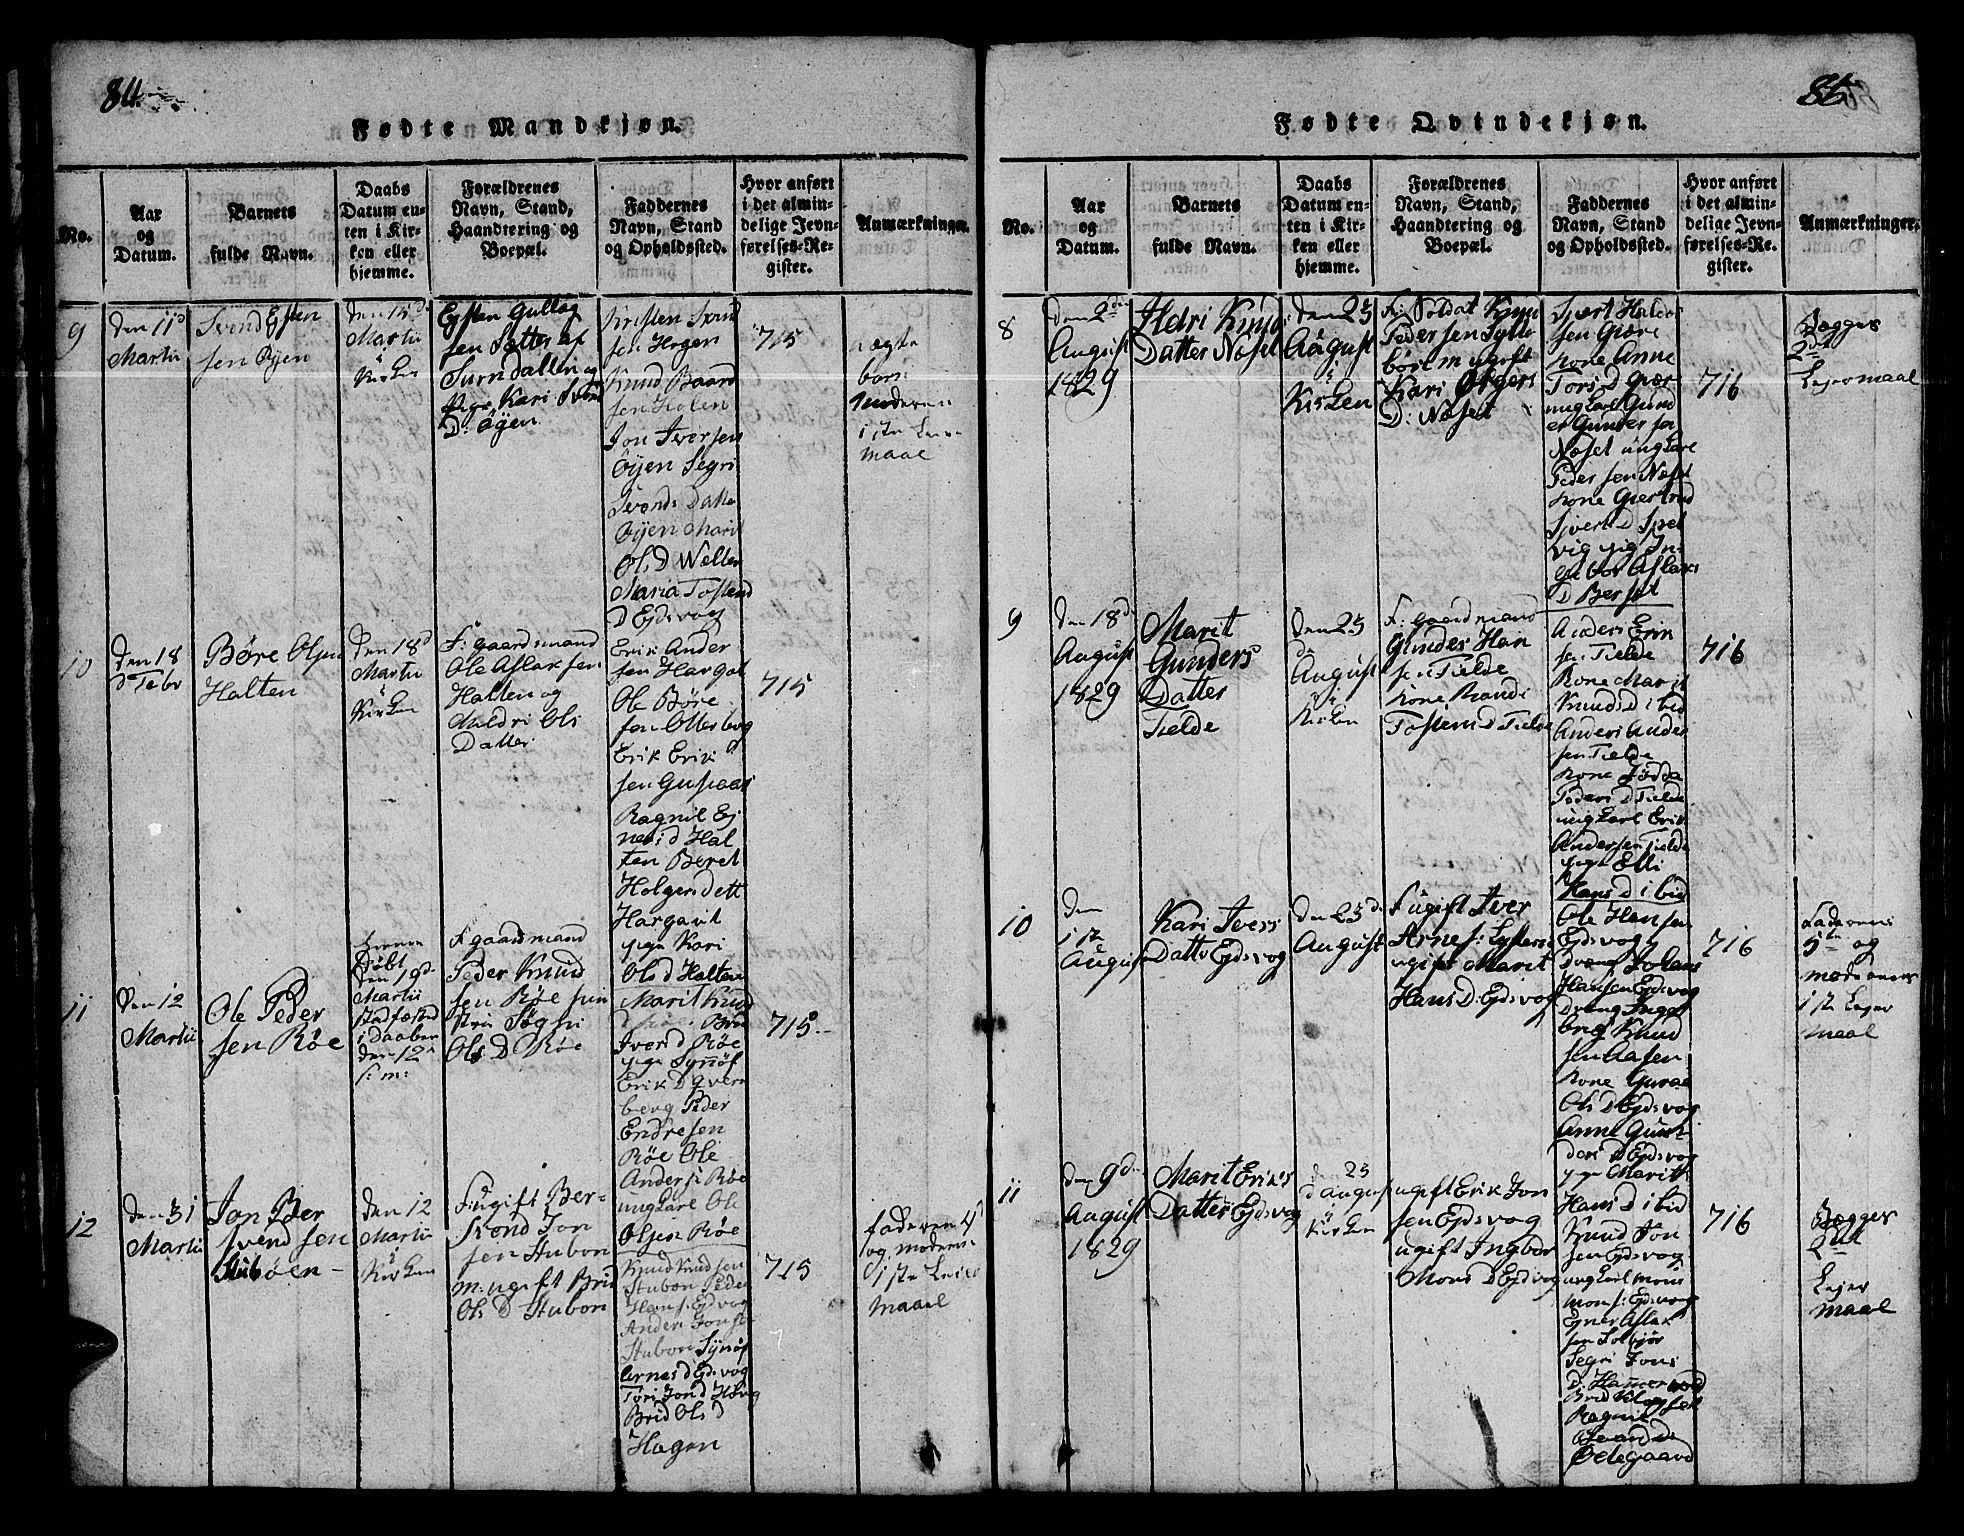 84.
Fødte Mandkjøn.
No.
Aar
og
Datum.
Barnets
fulde Navn.
Daabs
Datum en-
ten i Kir-
ken eller
hjemme.
Forældrenes
Navn, Stand,
Haandtering og
Boepæl.
Faddernes
Navn, Stand
og Opholdssted.
Hvor anført
i det almin-
delige Jevn-
førelses-Re-
gister.
Anmærkninger.
9
den 11d
Martii
Svend Eysten
sen Øyen
den 15d
Martii
i
Kirken
Eysten Gullag
sen Sætter af
Surndallen og
Pige Kari Svend
D: Øÿen
Kristen Svend
sen Hogen
Knud Baard
sen Holen
Jon Iversen
Öÿen Segri
Svends Datter
Øÿen Marit
Ols D
Maria Tosten
D Ejdsvog
715
uægte
barn
Moderen
1ste Leier
maal
10
den 18
d Febr
Børe Olsen
Halten
den 18d
Martii
i
Kirken
F: gaardmand
Ole Aslaksen
Halten og
Mildri Ols
Datter
Erik Ander
sen Hargot
Ole Børe
sen Otterbog
Erik Erik
sen Gusiaas
Ragnil Ej
ners d Hal
ten Beret
Holgers dett
Hargavit
pige Kari
Ols D Halten
715
11
den 12
Martii
Ole Peder
sen Røe
hjemme
Døbt
den 19d
Martii
stadfæsted
i Daaben
den 12
s: m:
F gaardmand
Peder Knud
sen Røe
Søgni
Ols D Røe
Marit Knud
Brid
Ivers D Røe
pige Synnøf
Erik D Qvern
berg Peder
Endresen
Røe Ole
Anders: Røe
ungkarl Ole
Olsen Røe
715.
12
den 31
Martii
Jon Ber
svendsen
Stubøen
den 12
Martii
i
Kirken
F: ugift Ber-
svend Jon
sen Stubon
m: ugift Brid
Ols D Stubon
Knud Knudsen
Stubon Peder
Hans s: Ejdsvog
Anders Jons:
Stubon Synøf
Arnes D Ejdsvog
Tøri Jons D Høvig
Brid Ols D
Hagen
715
faderen 4
og moderens
1ste Leier
maael
85.
Fødte Qvindekjøn.
No.
Aar
og
Datum.
Barnets
fulde Navn.
Daabs
Datum en-
ten i Kir-
ken eller
hjemme.
Forældrenes
Navn, Stand,
Haandtering og
Boepæl.
Faddernes
Navn, Stand
og Opholdssted.
Hvor anført
i det almin-
delige Jevn-
førelses-Re-
gister.
Anmærkninger.
8
den 2den
August
1829
Ildri Knud
Datter Nøset
den 25
August
i
Kirken
F: Soldat Knud
Pedersen Sylte
böe m ugift
Kari Holgers
D: Nøset
Sjvert Haldor
sen Giære
kone Anne
Tors D Giær
ungkarl Gund
er Gundersen
Nøset ungkarl
Pedersen Nøset
kone Giertrud
Sjvert D Spel
vig pige In-
gebor Aslaks
D Berset
716
Begges
2det
Leiermaal
9
den 18d
August
1829
Marit
Gunders
Datter
Tielde
den 25
August
i
Kirken
F: gaardmand
Gunder Han
sen Tielde
kone Randi
Tostens D Tielde
Anders Erik
sen Tielde
kone Marit
Knuds D ibid
Anders Ander
sen Tielde
kone Lødda
Peders D Tielde
ungkarl Erik
Andersen Tielde
pige Elli
Hans D ibid
716
10
den
1ste
August
Kari Ivers
Datter Ejdsvog
den 25 d
August
F ugift Iver
Arnes:
ugift Marit
Hans D: Ejdsvog
Ole Hansen
Ejdsvog
dreng Johans
Hansen Ejdsvog
Dreng Ingel
brigt Knud
sen Aasen
kone Guroe
Ols D Ejdsvog
Anne Gun
ders D Ejdsvog
pige Marith
Hans D ibid
716
Faderens
5te og
moderens
1ste Leier
maal
11
den 9d
August
1829
Marit Eriks
Datter Ejdsvog
den 25
d August
i
Kirken
ugift Erik Jon
sen Ejdsvog
ugift Ingbor
Mons D Ejdsvog
Knud Jon
sen Ejdsvog
ungkarl Mons
Mons: Ejdsvog
Ejner Aslak
sen Solbjør
Segri Jons
D: Hammervold
Ragnil
Svends D
Ødegaard
716
Begges
2det
Leier
maal